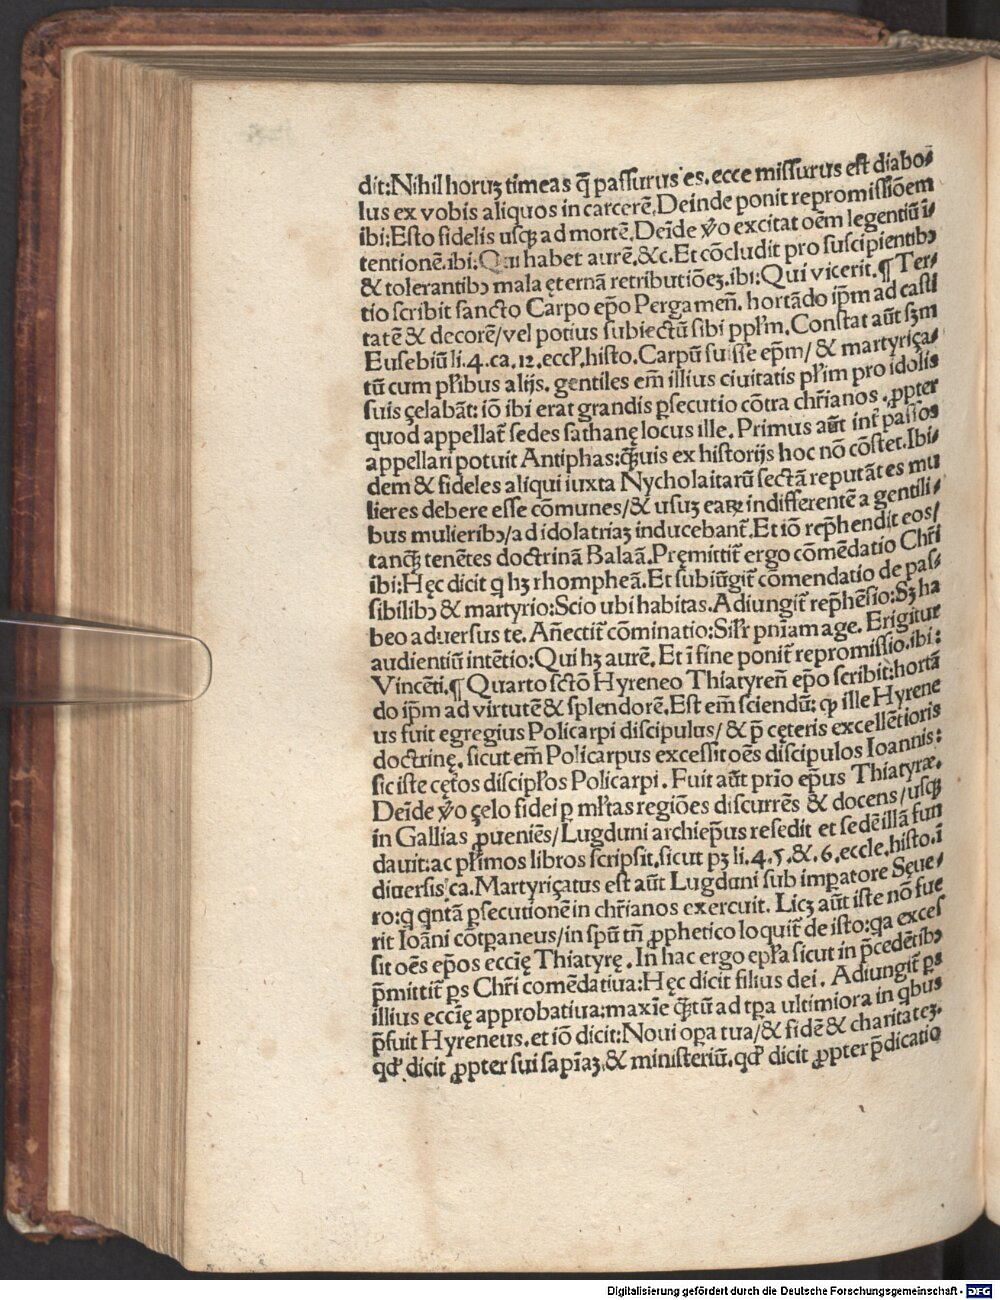 dit:Nihil horuꝫ timeas q̄ passurus es. ecce missurus est diabo⸗
lus ex vobis aliquos in carcerē. Deinde ponit repromissiōem
ibi:Esto fidelis usqꝫ ad mortē. Deīde v̄o excitat oēm legentiū ī⸗
tentionē.ibi:Qui habet aurē.&c. Et cōcludit pro suscipientibꝰ
& tolerantibꝰ mala ęternā retributiōeꝫ.ibi:Qui vicerit. ¶ Ter⸗
tio scribit sancto Carpo ep̄o Pergamen̄. hortādo ip̄m ad casti
tatē & decorē/vel potius subiectū sibi pp̄lm. Constat aūt sꝫm
Eusebiū li.4.ca.12.eccl̄.histo. Carpū fuisse ep̄m/& martyriça⸗
tū cum pl̄ibus alijs. gentiles em̄ illius ciuitatis pl̄im pro idolis
suis çelabāt: iō ibi erat grandis ꝑsecutio cōtra chr̄ianos. ꝓpter
quod appellat̄ sedes sathanę locus ille. Primus aūt int̄ passos
appellari potuit Antiphas:q̄uis ex historijs hoc nō cōstet. Ibi⸗
dem & fideles aliqui iuxta Nycholaitarū sectā reputātes mu
lieres debere esse cōmunes/& usuꝫ eaꝝ indifferentē a gentili⸗
bus mulieribꝰ/ad idolatriaꝫ inducebant̄. Et iō rep̄hendit eos/
tanqꝫ tenētes doctrinā Balaā. Pręmittit̄ ergo cōmēdatio Chr̄i
ibi:Hęc dicit q hꝫ rhompheā. Et subiūgit̄ cōmendatio de pas⸗
sibilibꝰ & martyrio:Scio ubi habitas. Adiungit̄ rep̄hēsio:Sꝫ ha
beo aduersus te. Añectit̄ cōminatio:Sil̄r pn̄iam age. Erigitur
audientiū intētio:Qui hꝫ aurē. Et ī fine ponit̄ repromissio.ibi:
Vincēti. ¶ Quarto sctō Hyreneo Thiatyren̄ ep̄o scribit:hortā
do ip̄m ad virtutē & splendorē. Est em̄ sciendū: ꝙ ille Hyrene
us fuit egregius Policarpi discipulus/& p̄ cęteris excellētioris
doctrinę. sicut em̄ Policarpus excessit oēs discipulos Ioannis:
sic iste cęt̄os discipl̄os Policarpi. Fuit aūt prīo ep̄us Thiatyræ.
Deīde v̄o çelo fidei ꝑ ml̄tas regiōes discurrēs & docens/usqꝫ
in Gallias ꝓueniēs/Lugduni archiep̄us resedit et sedē illā fun
dauit:ac pl̄imos libros scripsit. sicut pꝫ li.4.5.&.6.eccle.histo.ī
diuersis ca. Martyriçatus est aūt Lugduni sub imꝑatore Seue⸗
ro:q qntā ꝑsecutionē in chr̄ianos exercuit. Licꝫ aūt iste nō fue
rit Ioāni cōtꝑaneus/in spū tn̄ ꝓphetico loquit̄ de isto:qa exces
sit oēs ep̄os ecc̄ię Thiatyrę. In hac ergo epl̄a sicut in p̄cedētibꝰ
p̄mittit̄ ps Chr̄i comēdatiua:Hęc dicit filius dei. Adiungit̄ ps
illius ecc̄ię approbatiua:maxīe q̄tū ad tꝑa ultimiora in qbus
p̄fuit Hyreneus. et iō dicit:Noui oꝑa tua/& fidē & charitateꝫ.
qd̄ dicit ꝓpter sui sapīaꝫ & ministeriū.qd̄ dicit ꝓpter p̄dicatio
Digitalisierung gefördert durch die Deutsche Forschungsgemeinschaft - DFG